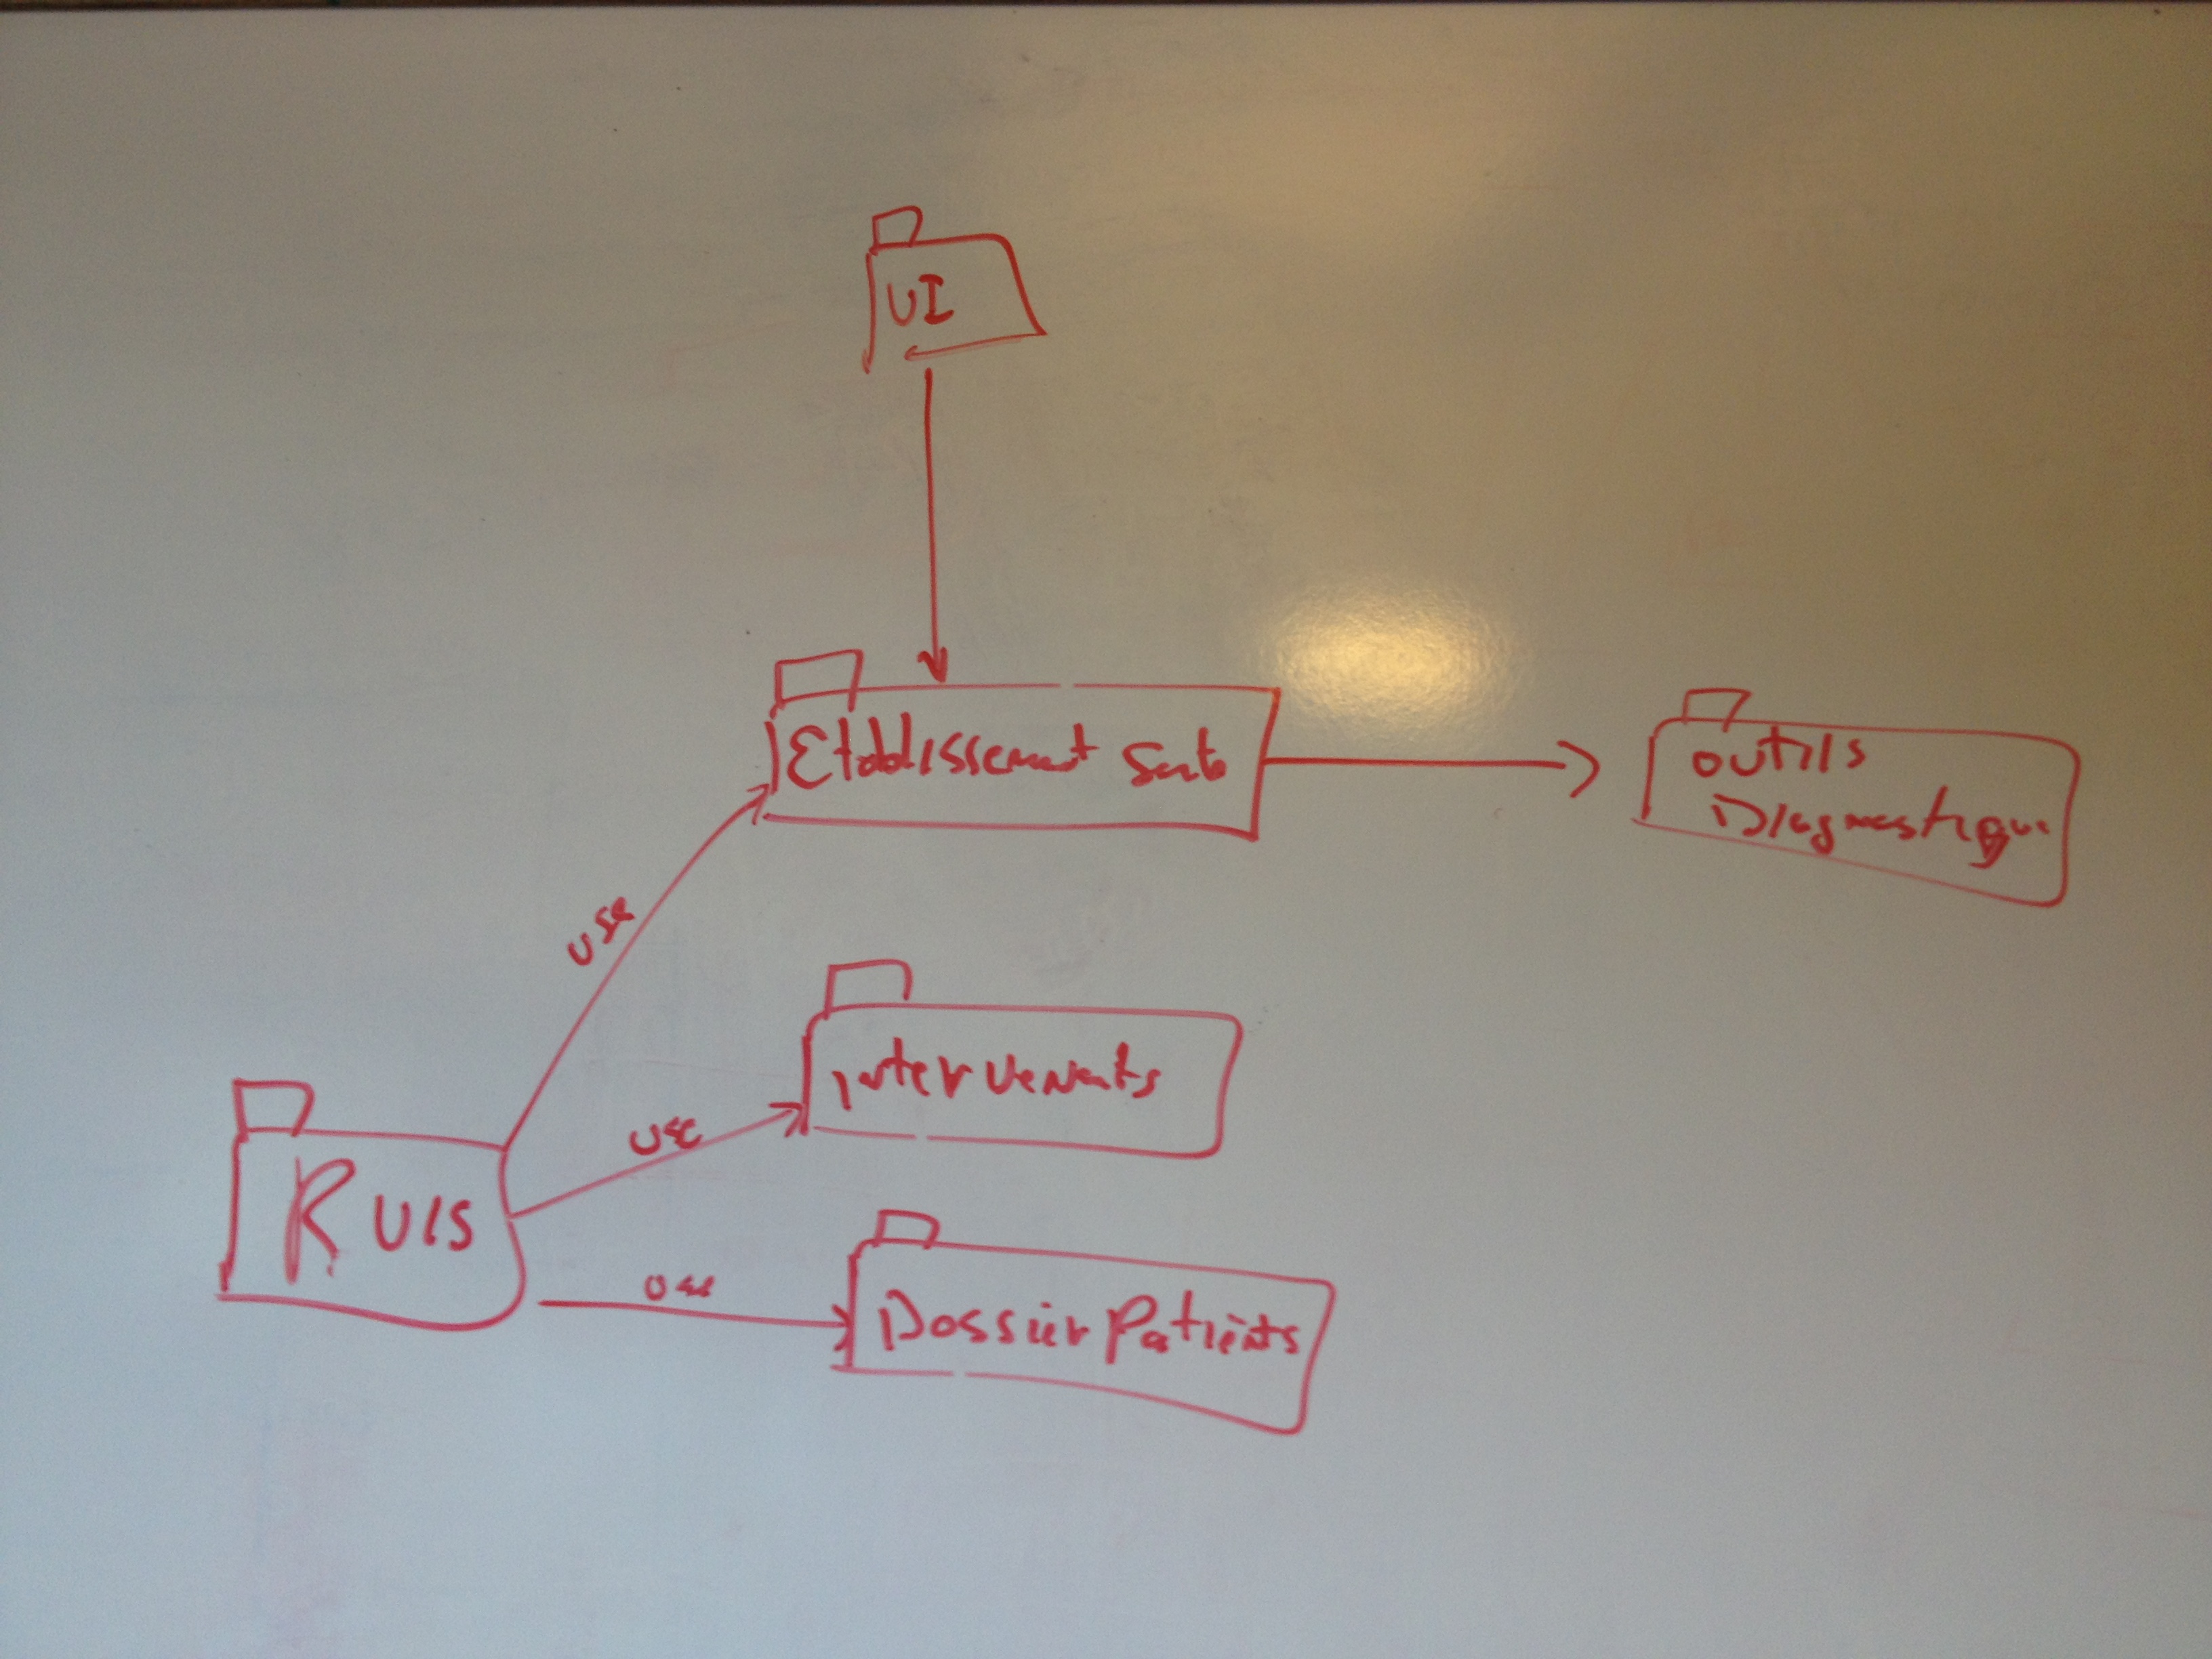 UI
Etablissement Sante
outils
Diagnostique
use
Intervenants
use
RUIS
use
Dossier Patients